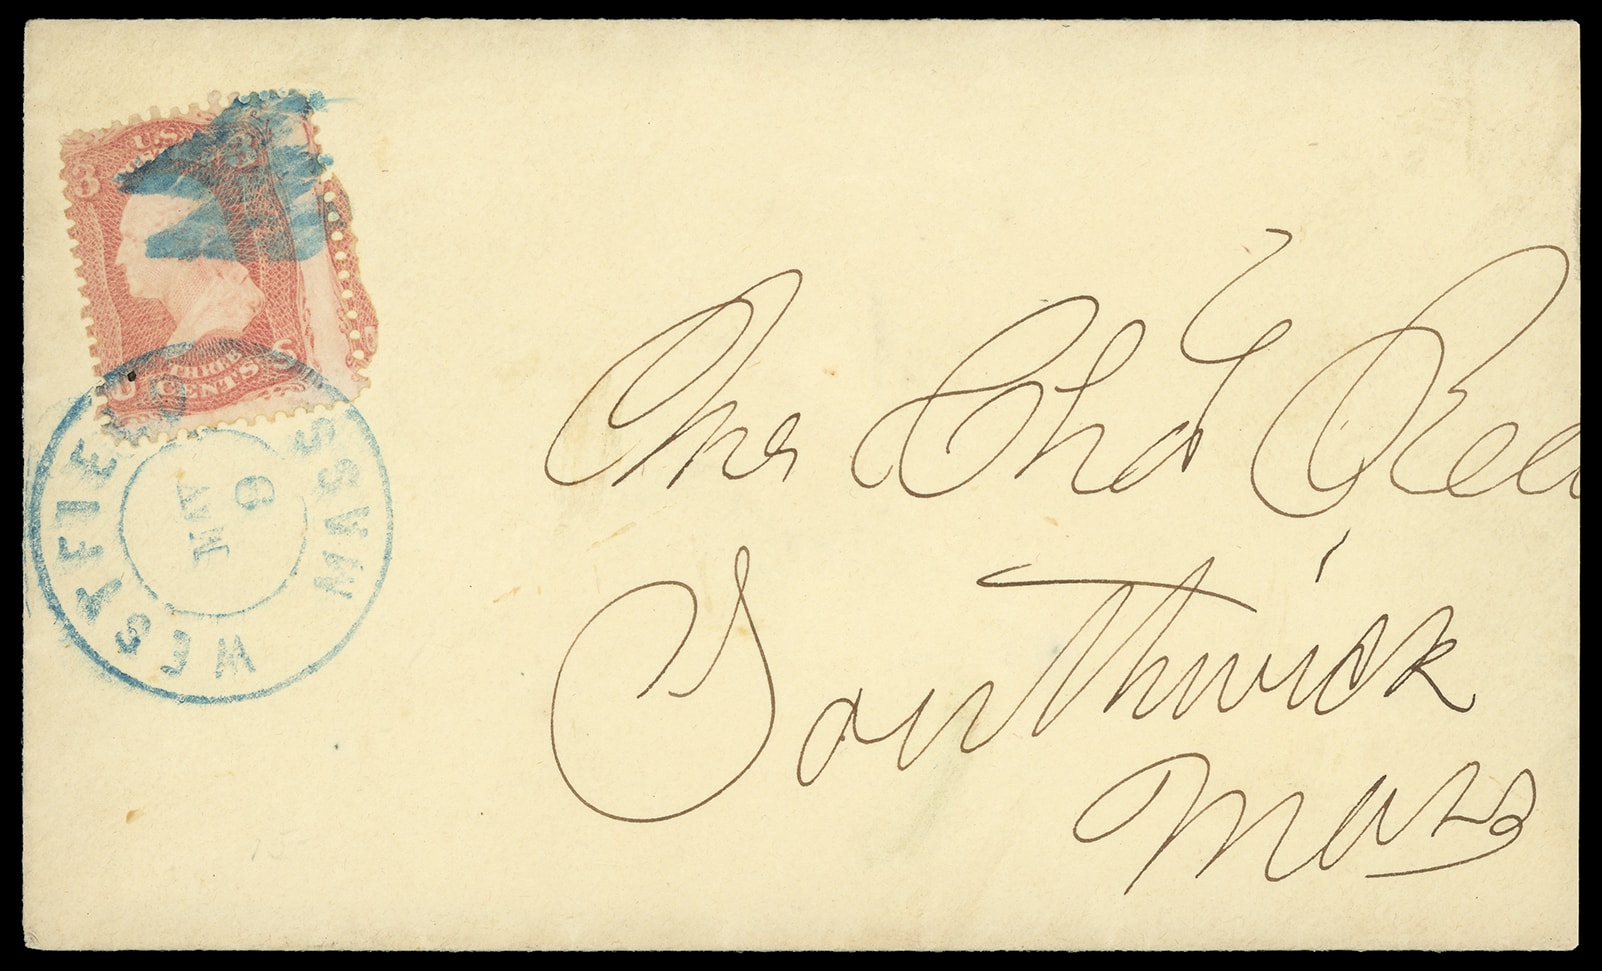 U.S.
3 3
THREE
CENTS
WESTFIELD MASS
MAY
9
Mrs Chas Reed
Southwick
Mass